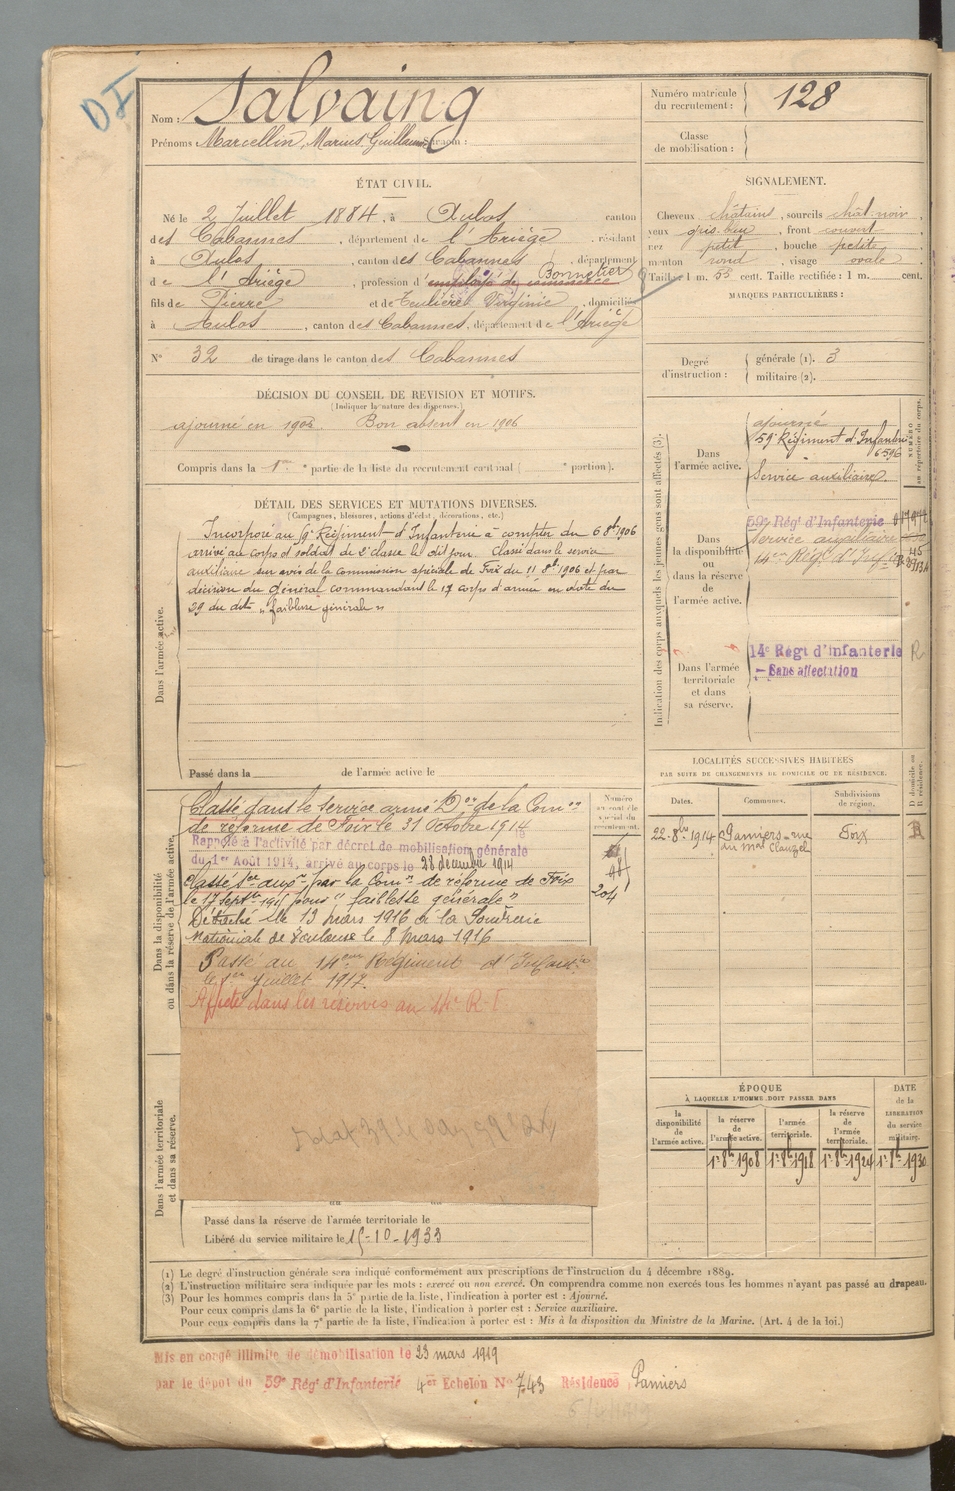 DI
Nom : Salvaing
Prénoms : Marcellin, Marius, Guillaume Surnom :
Numéro matricule du recrutement : 128
Classe de mobilisation :
ÉTAT CIVIL.
Né le 2 Juillet 1884, à Aulos canton
des Cabannes, département de l'Ariège, résidant
à Aulos, canton des Cabannes, département
de l'Ariège, profession d'employé de commerce Bonnetier
fils de Pierre et de Virginie, domiciliés
à Aulos, canton des Cabannes, département de l'Ariège
N° 32 de tirage dans le canton des Cabannes
SIGNALEMENT.
Cheveux châtains, sourcils chât-noir,
yeux gris-bleu, front couvert,
nez petit, bouche petite,
menton rond, visage ovale.
Taille : 1 m. 55 cent. Taille rectifiée : 1 m. cent.
MARQUES PARTICULIÈRES :
Degré d'instruction : générale (1). 3
militaire (2).
DÉCISION DU CONSEIL DE REVISION ET MOTIFS.
(Indiquer la nature des dispenses.)
ajourné en 1905. Bon absent en 1906
Compris dans la 1re partie de la liste du recrutement cantonal ( e portion).
DÉTAIL DES SERVICES ET MUTATIONS DIVERSES.
(Campagnes, blessures, actions d'éclat, décorations, etc.)
Dans l'armée active.
Incorporé au 59e Régiment d'Infanterie à compter du 6 8bre 1906
arrivé au corps et soldat de 2e classe le dit jour. Classé dans le service
auxiliaire sur avis de la commission spéciale de Foix du 11 8bre 1906 et par
décision du général commandant le 17 corps d'armée en date du
29 du dit "faiblesse générale"
Passé dans la de l'armée active le
Dans la disponibilité ou dans la réserve de l'armée active.
Classé dans le service armé Don de la Comon
de réforme de Foix le 31 Octobre 1914
Rappelé à l'activité par décret de mobilisation générale
du 1er Août 1914, arrivé au corps le 28 décembre 1914
Classé sce auxre par la Comon de réforme de Foix
le 17 Septbre 1915 pour "faiblesse générale"
Détaché le 13 mars 1916 à la Poudrerie
Nationale de Toulouse le 8 mars 1916
Passé au 14eme Régiment d'Infanterie
le 1er Juillet 1917.
Affecté dans les réserves au 14e R.I.
Numéro au contrôle spécial du recrutement.
204
Dans l'armée territoriale et dans sa réserve.
Passé dans la réserve de l'armée territoriale le
Libéré du service militaire le 15-10-1933
Indication des corps auxquels les jeunes gens sont affectés (3).
NUMÉRO au répertoire du corps.
Dans l'armée active.
ajourné
59e Régiment d'Infanterie
6596
Service auxiliaire.
Dans la disponibilité ou dans la réserve de l'armée active.
59e Régt d'Infanterie
Service auxiliaire
14em Régt d'Infie
Dans l'armée territoriale et dans sa réserve.
14e Régt d'Infanterie
- Sans affectation
R
LOCALITÉS SUCCESSIVES HABITÉES
PAR SUITE DE CHANGEMENTS DE DOMICILE OU DE RÉSIDENCE.
Dates. Communes. Subdivisions de région. D domicile ou R résidence.
22-8bre 1914 Pamiers - rue du Mal Clauzel Foix R
ÉPOQUE
À LAQUELLE L'HOMME DOIT PASSER DANS
DATE de la LIBÉRATION du service militaire.
la disponibilité de l'armée active. la réserve de l'armée active. l'armée territoriale. la réserve de l'armée territoriale.
1r 8bre 1908 1r 8bre 1918 1r 8bre 1924 1r 8bre 1930
(1) Le degré d'instruction générale sera indiqué conformément aux prescriptions de l'instruction du 4 décembre 1889.
(2) L'instruction militaire sera indiquée par les mots : exercé ou non exercé. On comprendra comme non exercés tous les hommes n'ayant pas passé au drapeau.
(3) Pour les hommes compris dans la 5e partie de la liste, l'indication à porter est : Ajourné.
Pour ceux compris dans la 6e partie de la liste, l'indication à porter est : Service auxiliaire.
Pour ceux compris dans la 7e partie de la liste, l'indication à porter est : Mis à la disposition du Ministre de la Marine. (Art. 4 de la loi.)
Mis en congé illimité de démobilisation le 23 mars 1919
par le dépôt du 59e Régt d'Infanterie 4e Echelon N° 743 Résidence Pamiers